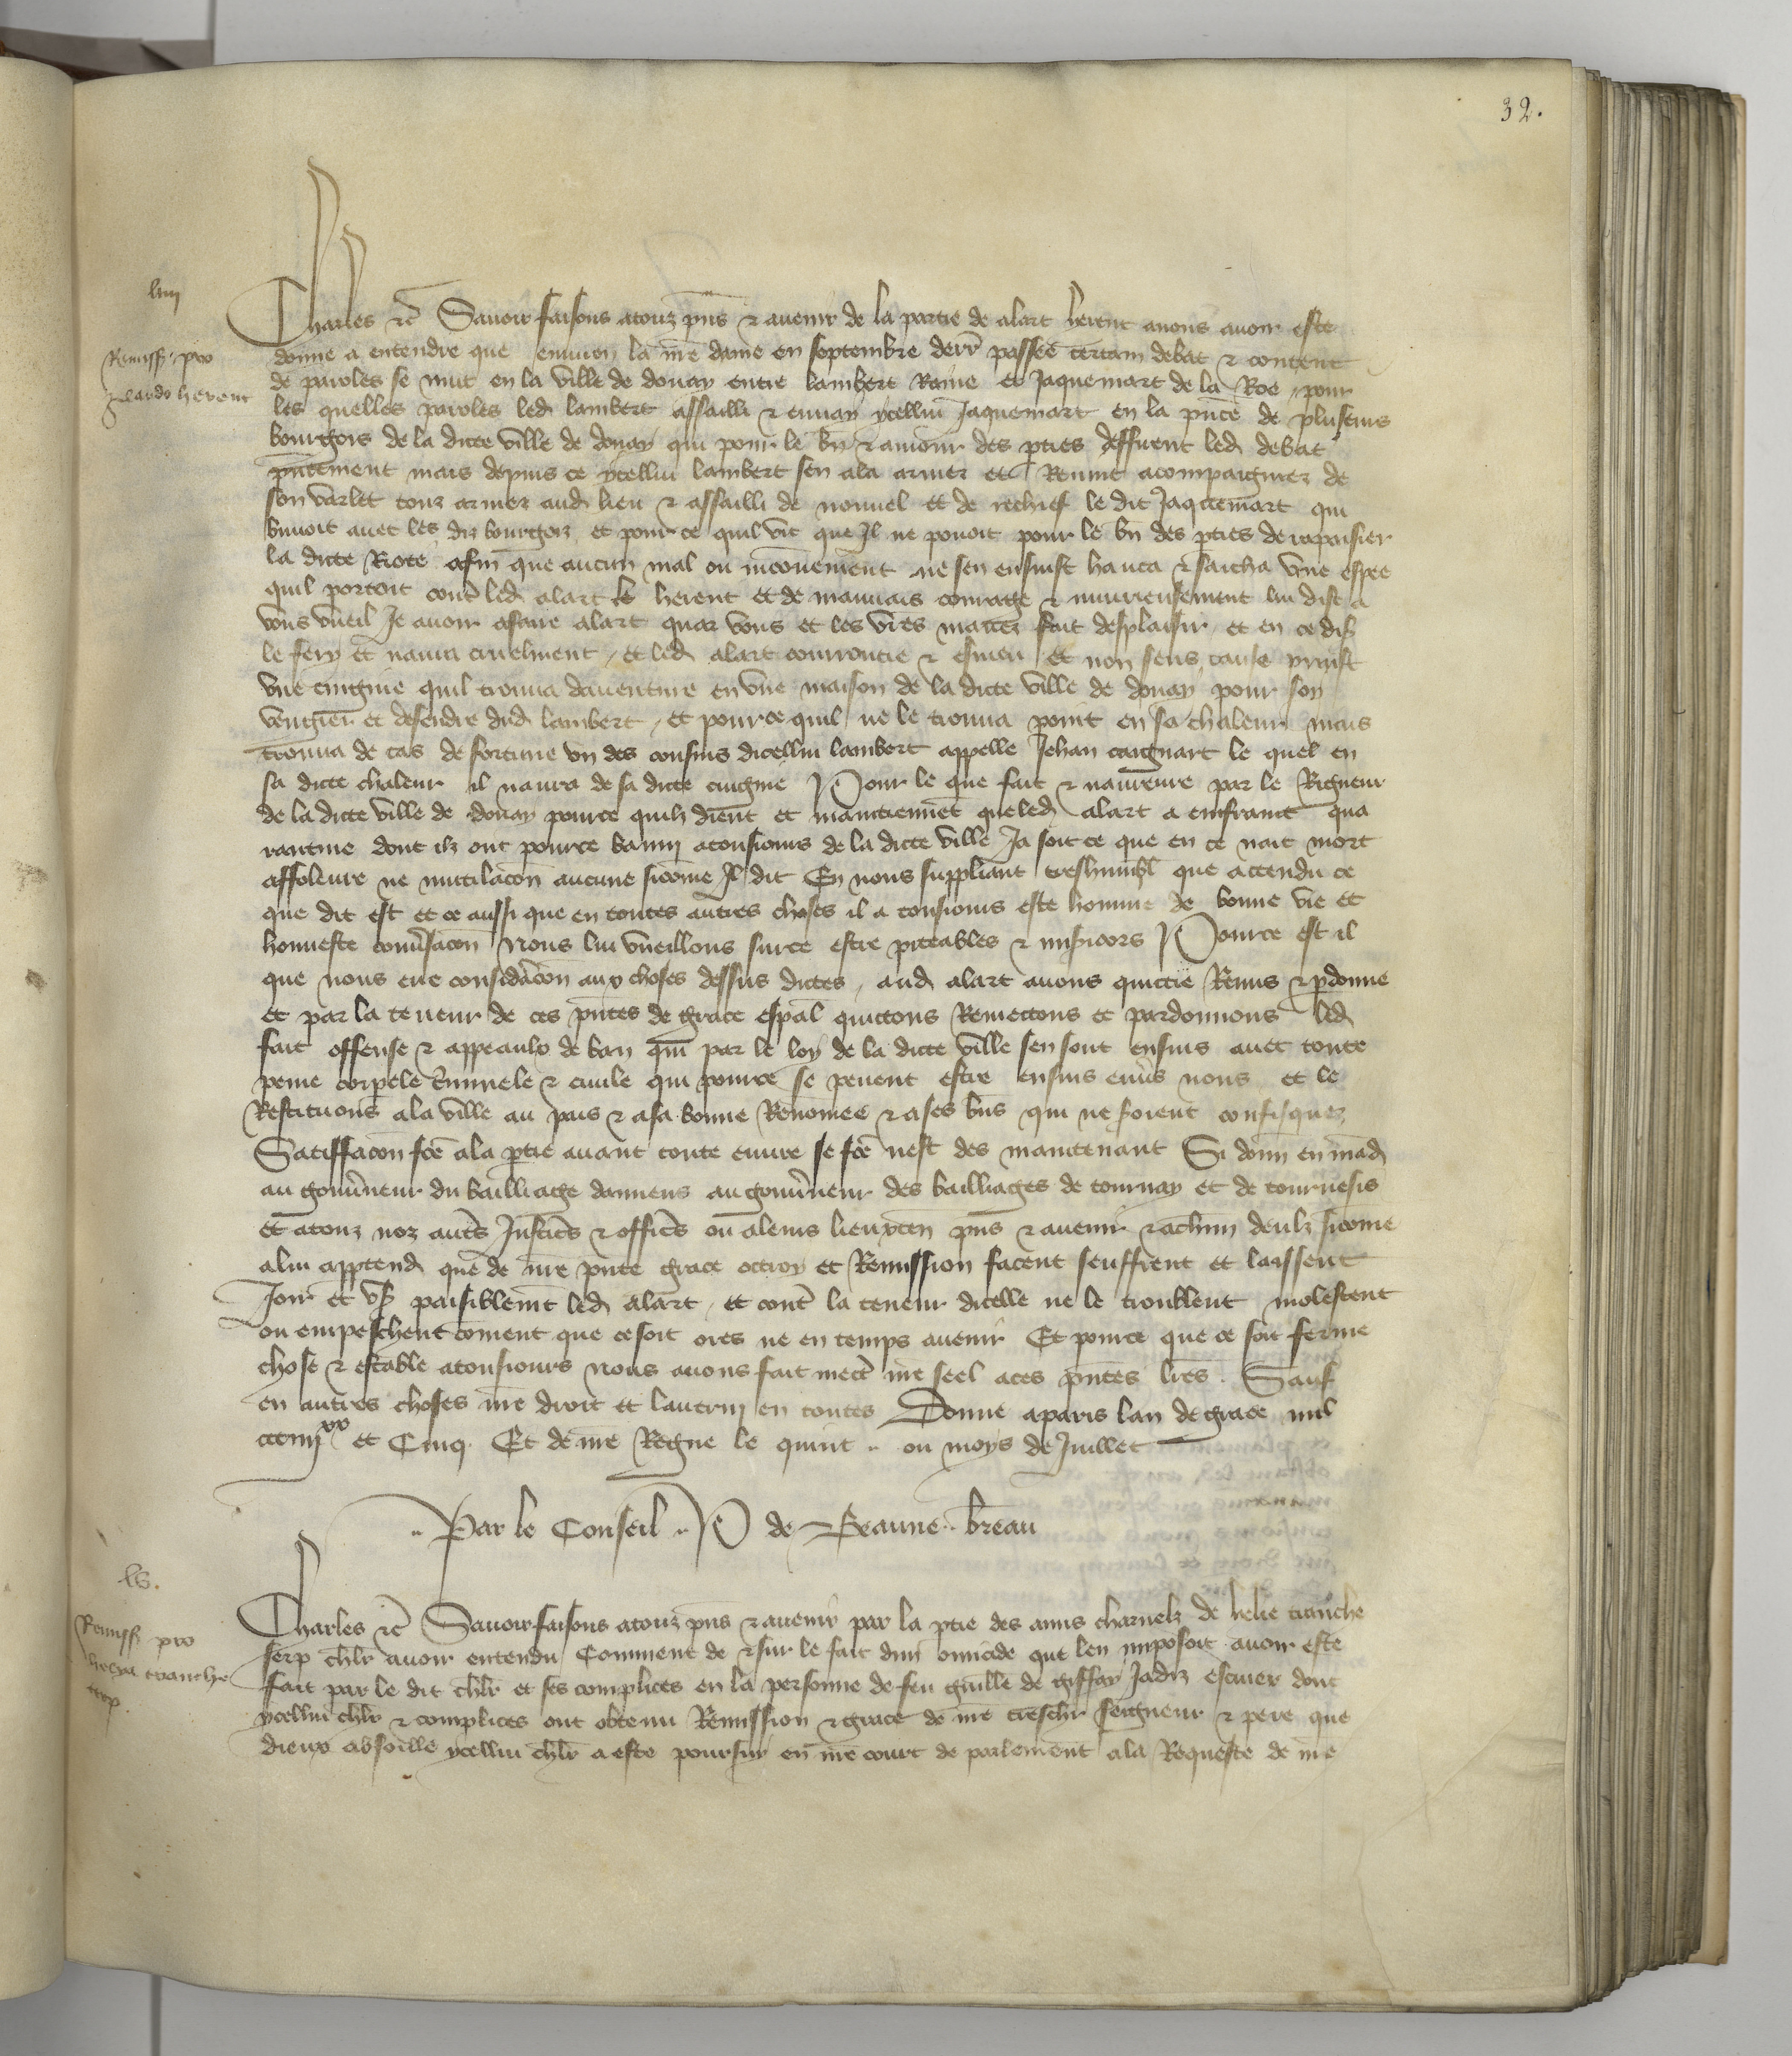 32.
liiij
Charles etc Savoir faisons atouz pns & avenir de la partie de alart herent avons avoir este
Remiss pro
donne a entendre que environ la nre dame en septembre derr passee certain debat & content
alardo herent
de paroles se mut en la ville de douay entre lambert Raine et Jaquemart de la Roe, pour
les quelles paroles led lambert assailli & envay ycellui Jaquemart en la pnce de pluseurs
bourgois de la dicte ville de douay qui pour le bn & amour des pties deffirent led debat
pntement mais depuis ce ycellui lambert sen ala armer et Revint acompaignez de
son varlet touz armez aud lieu & assailli de nouvel et de rechief le dit Jaquemart qui
buvoit avec les diz bourgois et pour ce quil vit que Il ne povoit pour le bn des pties de rapaisier
la dicte Riote afin que aucun mal ou inconvenient ne sen ensuist hauca & saicha une espee
quil portoit contre led alart le herent et de mauvais courage & injurieusement lui dist a
vous vueil Je avoir afaire alart quar vous et les vres mavez fait desplaisir et en ce dis
le fery et navra cruelment, et led alart courroucie & esmeu et non sens cause prinst
une cuignie quil trouva daventure en une maison de la dicte ville de douay pour soy
vengier et defendre dud lambert, et pource quil ne le trouva point en sa chaleur mais
trouva de cas de fortune un des cousins dicellui lambert appelle Jehan caignart le quel en
sa dicte chaleur il navra de sa dicte cuignie Pour le que fait & navreure par le Rigueur
de la dicte ville de douay pource quilz dient et maintiennet que led alart a enfraint qua
rantine dont ilz ont pource banny atousiours de la dicte ville Ja soit ce que en ce nait mort
affoleure ne mutilacon aucune sicome Il dit En nous suppliant treshumbl que attendu ce
que dit est et ce aussi que en toutes autres choses il a tousiours este homme de bonne vie et
honneste conversacon Nous lui vueillons surce estre piteables & misicors Pource est il
que nous eue considacon aux choses dessus dictes, aud alart avons quictie Remis & pdonne
et par la teneur de ces pntes de grace espal quictons Remectons et pardonnons led
fait offense & appeaulx de ban qui par le loy de la dicte ville sen sont ensuis avec toute
peine corpele criminele & civile qui pource se pevent estre ensuis envers nous et le
Restituons ala ville au pais & asa bonne Renomee & ases bns qui ne soient confisquez
Satiffacon fce ala ptie avant toute euvre se fce nest des maintenant Si donn en mand
au gouverneur du bailliage damiens au gouverneur des bailliages de tournay et de tournesis
et atouz noz autres Justices & offices ou aleurs lieuxten pns & avenir & achun deulz sicome
alui apptend que de nre pnte grace octroy et Remission facent seuffrent et laissent
Joir et user paisiblemt led alart, et contre la teneur dicelle ne le troublent molestent
ou empeschent coment que ce soit ores ne en temps avenir Et pource que ce soit ferme
chose & estable atousiours nous avons fait mectre nre seel aces pntes lres. Sauf
en autres choses nre droit et lautruy en toutes Donne aparis lan de grace mil
ccciiijxx et Cinq. Et de nre Regne le quint .. ou moys de Juillet
.. Par le Conseil .. P de Beaune .. breau
lv.
Charles etc Savoir faisons atouz pns & avenir par la ptie des amis charnelz de helie tranche
Remiss pro
serp chlr avoir entendu Comment de & sur le fait dun omicide que len imposoit avoir este
helya tranche
fait par le dit chlr et ses complices en la personne de feu guille de giffay Jadiz escuier dont
serp
ycellui chlr & complices ont obtenu Remission & grace de nre treschr seigneur & pere que
dieux absoille ycellui chlr a este poursuy en nre court de parlement ala Requeste de nre